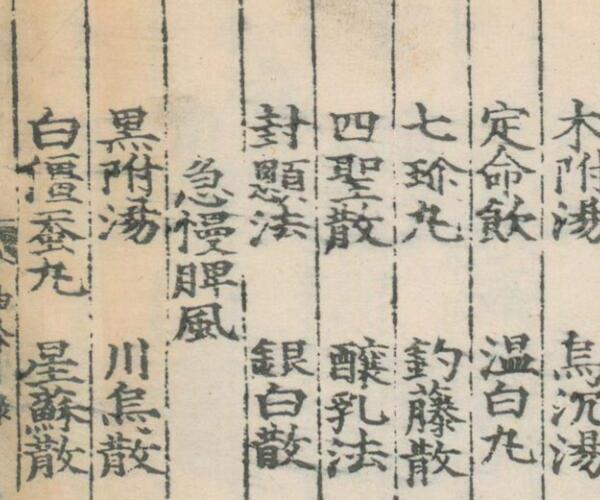 木附湯 烏沉湯
定命飲 温白丸
七珎丸 釣藤散
四聖散 釀乳法
封顖法 銀白散
急慢脾風
黒附湯 川烏散
白僵蚕丸 星蘇散